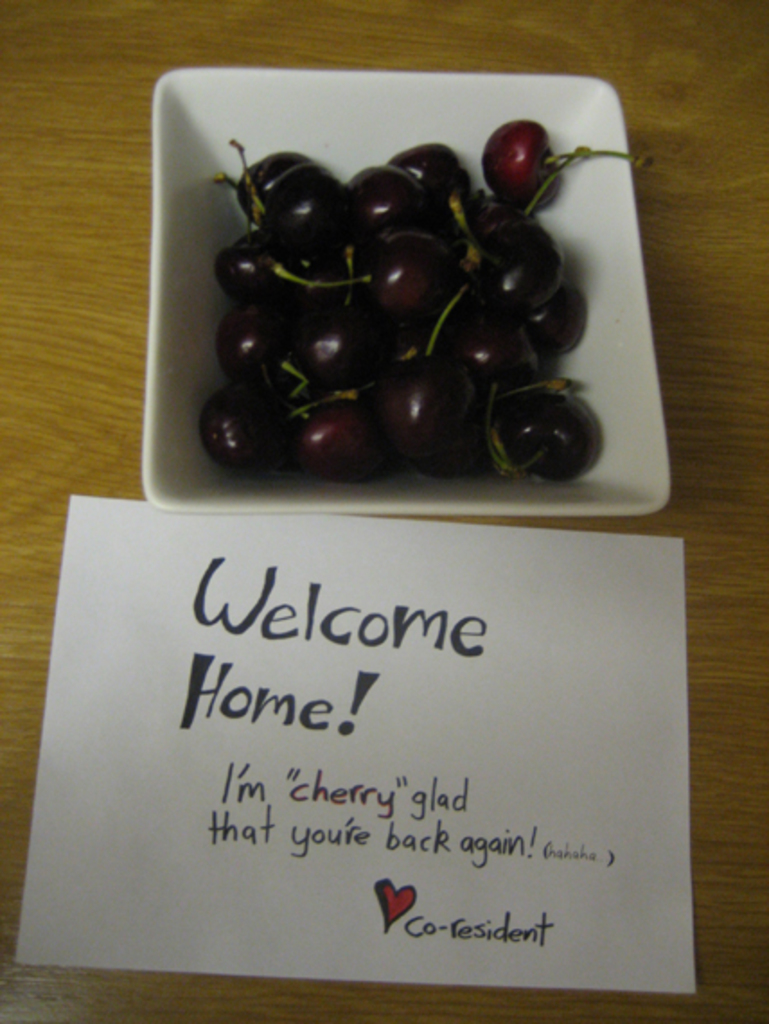 Welcome
Home!
I'm "cherry" glad
that you're back again! (hahaha..)
co-resident